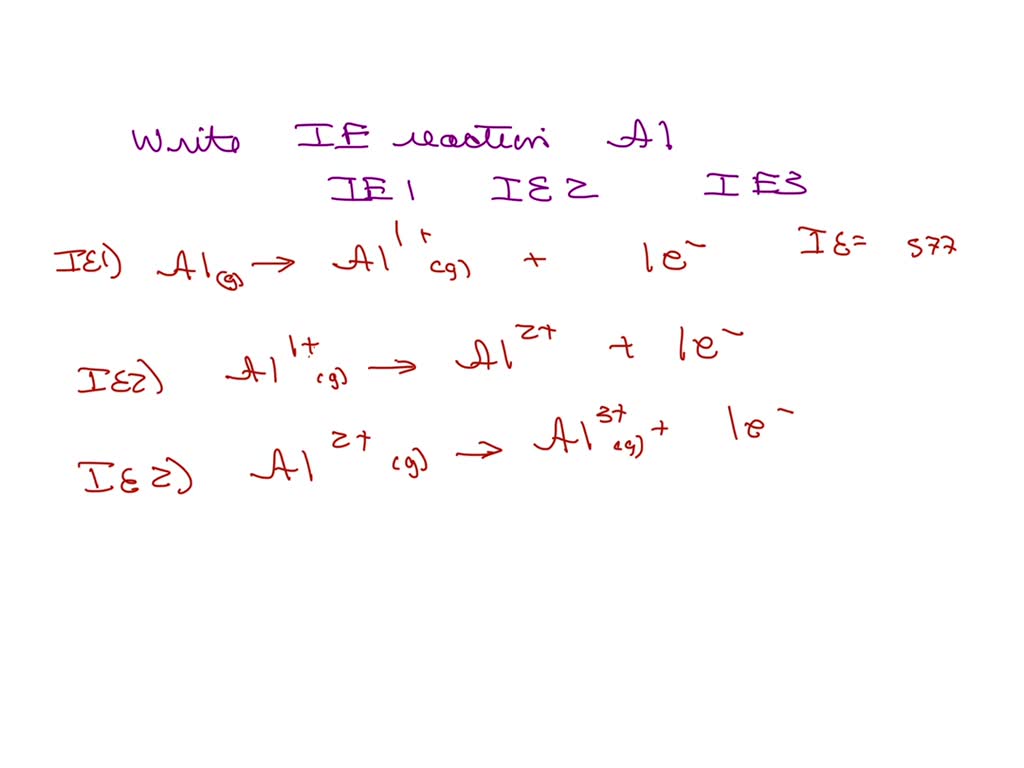 Write IE reaction Al
IE1 IE2 IE3
IE1) Al(g) → Al¹⁺(g) + 1e⁻ IE= 577
IE2) Al¹⁺(g) → Al²⁺ + 1e⁻
IE2) Al²⁺(g) → Al³⁺(g) + 1e⁻